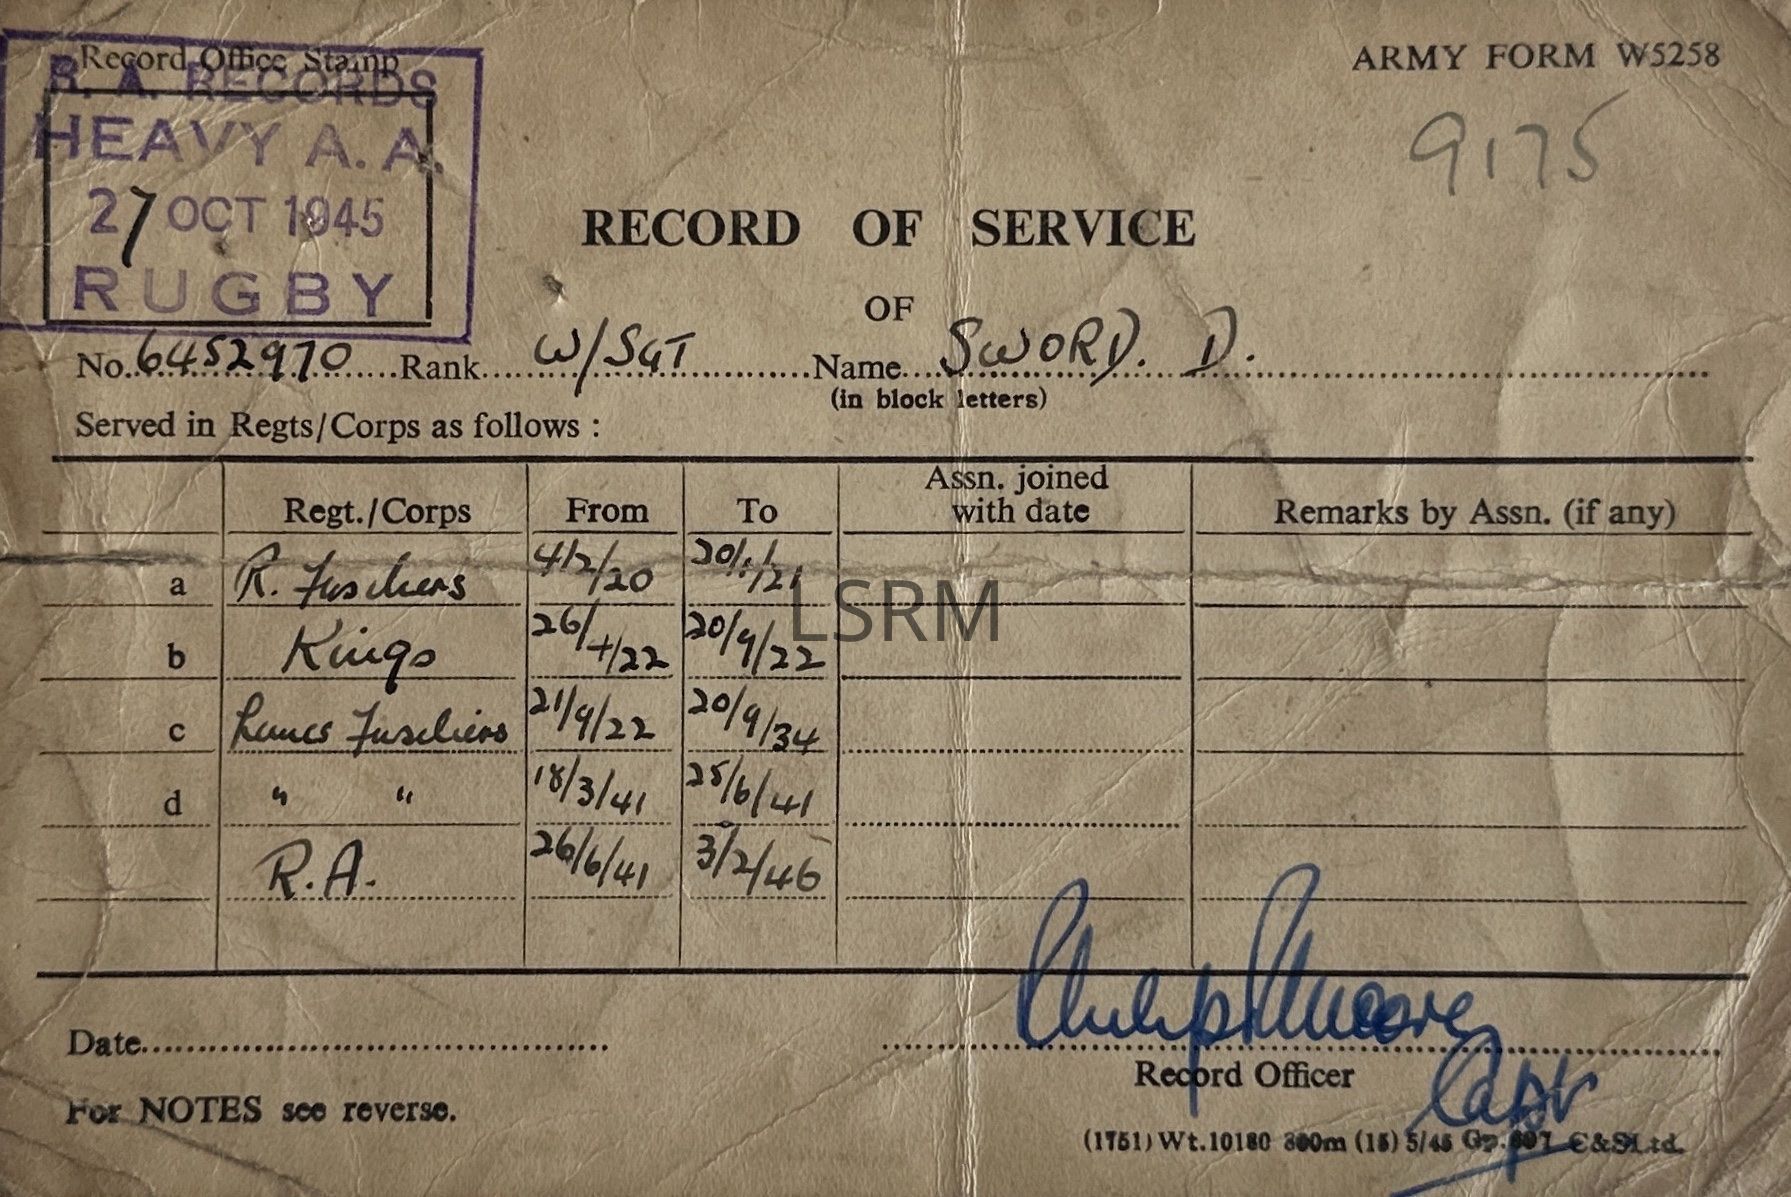 Record Office Stamp
R. A. RECORDS
HEAVY A. A.
27 OCT 1945
RUGBY
ARMY FORM W5258
9175
RECORD OF SERVICE
OF
No. 6452970 Rank W/SGT Name SWORD. D.
(in block letters)
Served in Regts/Corps as follows :
Regt./Corps From To Assn. joined with date Remarks by Assn. (if any)
a R. Fusiliers 4/2/20 20/1/21
b Kings 26/ /22 20/9/22
c Lancs Fusiliers 21/9/22 20/9/34
d " " 18/3/41 25/6/41
R.A. 26/6/41 3/2/46
LSRM
Date
Philip Moore
Capt
Record Officer
For NOTES see reverse.
(1751) Wt.10180 300m (15) 5/45 Gp. C&SLtd.